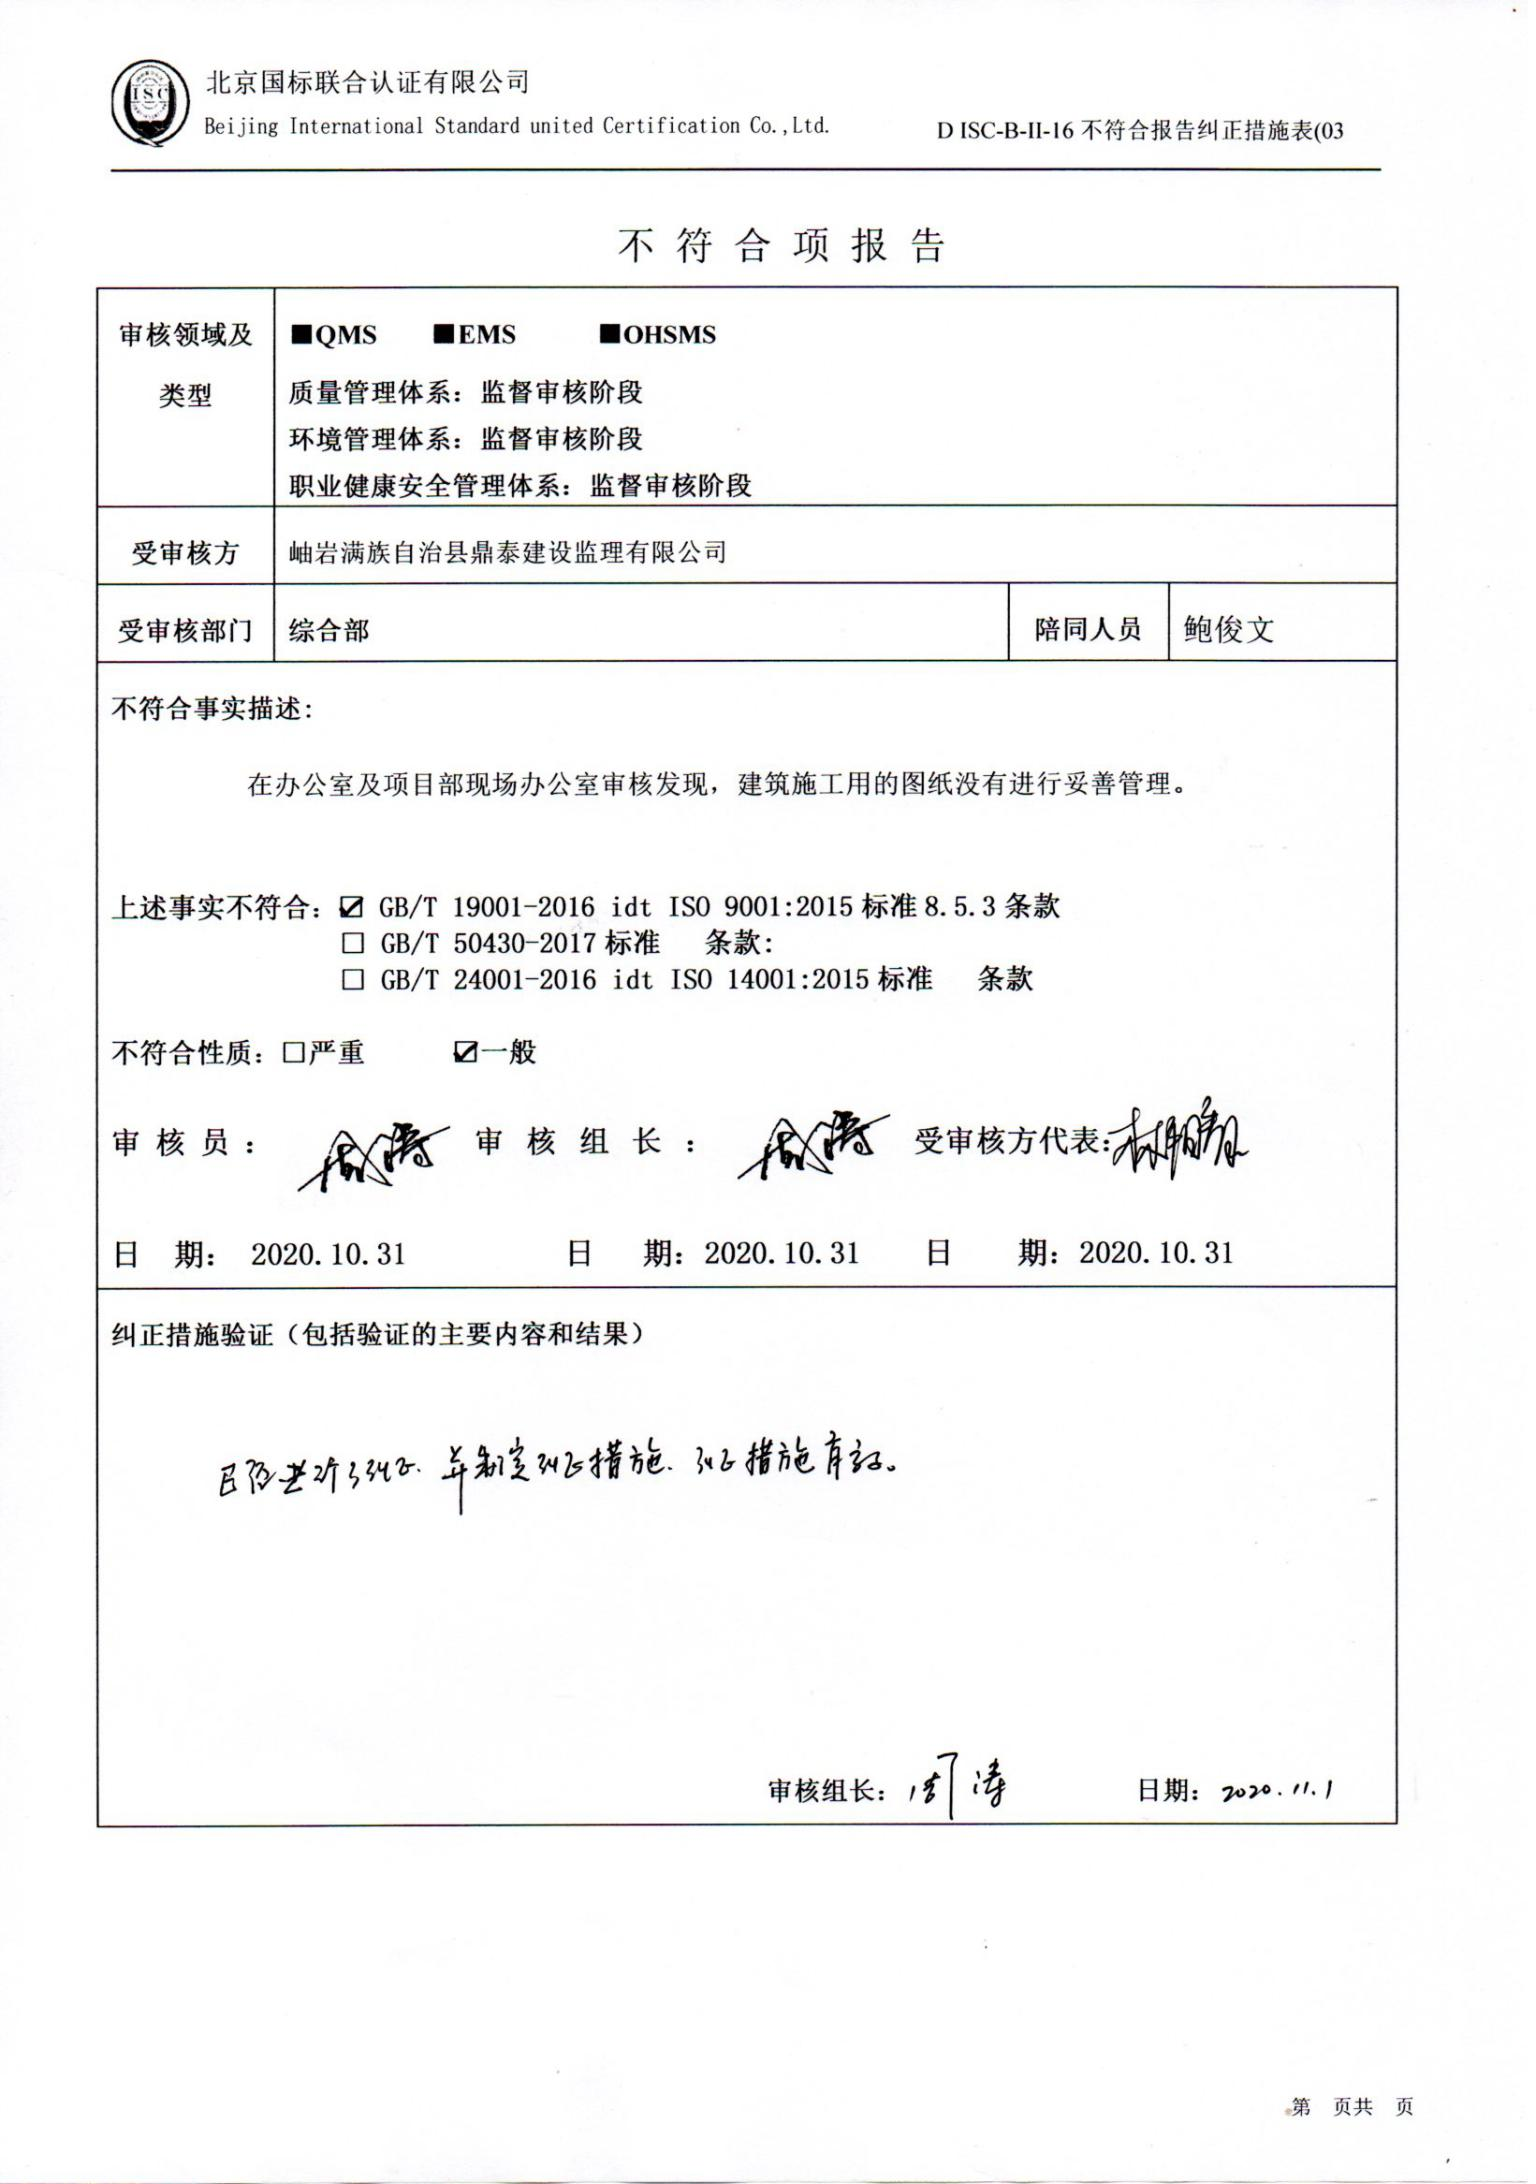 ISC
北京国标联合认证有限公司
Beijing International Standard united Certification Co.,Ltd.
D ISC-B-II-16 不符合报告纠正措施表(03
不符合项报告
审核领域及类型
■QMS ■EMS ■OHSMS
质量管理体系：监督审核阶段
环境管理体系：监督审核阶段
职业健康安全管理体系：监督审核阶段
受审核方 岫岩满族自治县鼎泰建设监理有限公司
受审核部门 综合部 陪同人员 鲍俊文
不符合事实描述：
在办公室及项目部现场办公室审核发现，建筑施工用的图纸没有进行妥善管理。
上述事实不符合：☑ GB/T 19001-2016 idt ISO 9001:2015标准8.5.3条款
□ GB/T 50430-2017标准 条款：
□ GB/T 24001-2016 idt ISO 14001:2015标准 条款
不符合性质：□严重 ☑一般
审核员： 周涛 审核组长： 周涛 受审核方代表：
日 期： 2020.10.31 日 期：2020.10.31 日 期：2020.10.31
纠正措施验证（包括验证的主要内容和结果）
已经进行了纠正、并制定纠正措施、纠正措施有效。
审核组长：周涛 日期：2020.11.1
第 页共 页